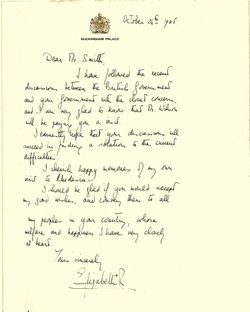 BUCKINGHAM PALACE
October 24th 1965
Dear Mr. Smith,
I have followed the recent
discussions between the British Government
and your Government with the closest concern,
and I am very glad to know that Mr Wilson
will be paying you a visit.
I earnestly hope that your discussions will
succeed in finding a solution to the current
difficulties.
I cherish happy memories of my own
visit to Rhodesia.
I should be glad if you would accept
my good wishes, and convey them to all
my peoples in your country, whose
welfare and happiness I have very closely
at heart.
Yours sincerely
Elizabeth R